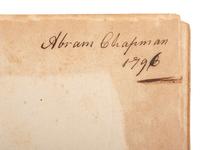 Abram Chapman
1796